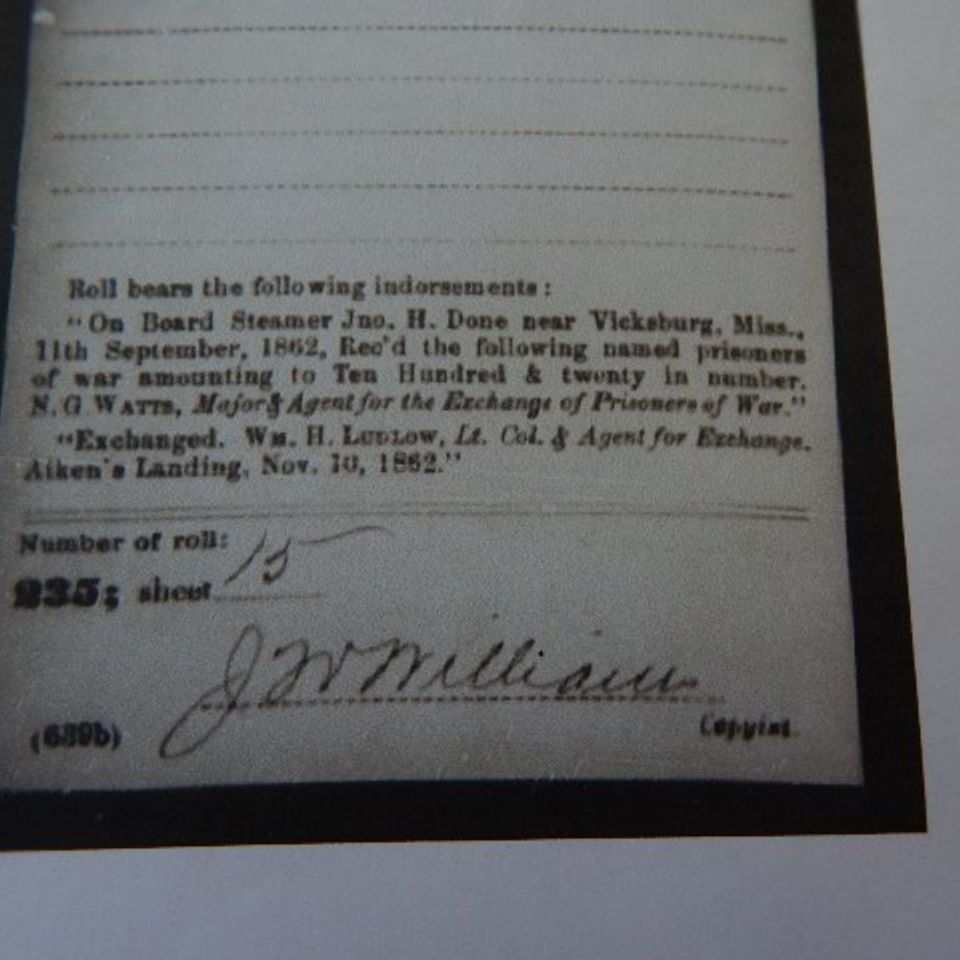 Roll bears the following indorsements:
"On Board Steamer Jno. H. Done near Vicksburg, Miss.,
11th September, 1862, Rec'd the following named prisoners
of war amounting to Ten Hundred & twenty in number.
N. G WATTS, Major & Agent for the Exchange of Prisoners of War."
"Exchanged. WM. H. LUDLOW, Lt. Col. & Agent for Exchange.
Aiken's Landing, Nov. 10, 1862."
Number of roll:
235; sheet 15
J W William
(639b)
Copyist.